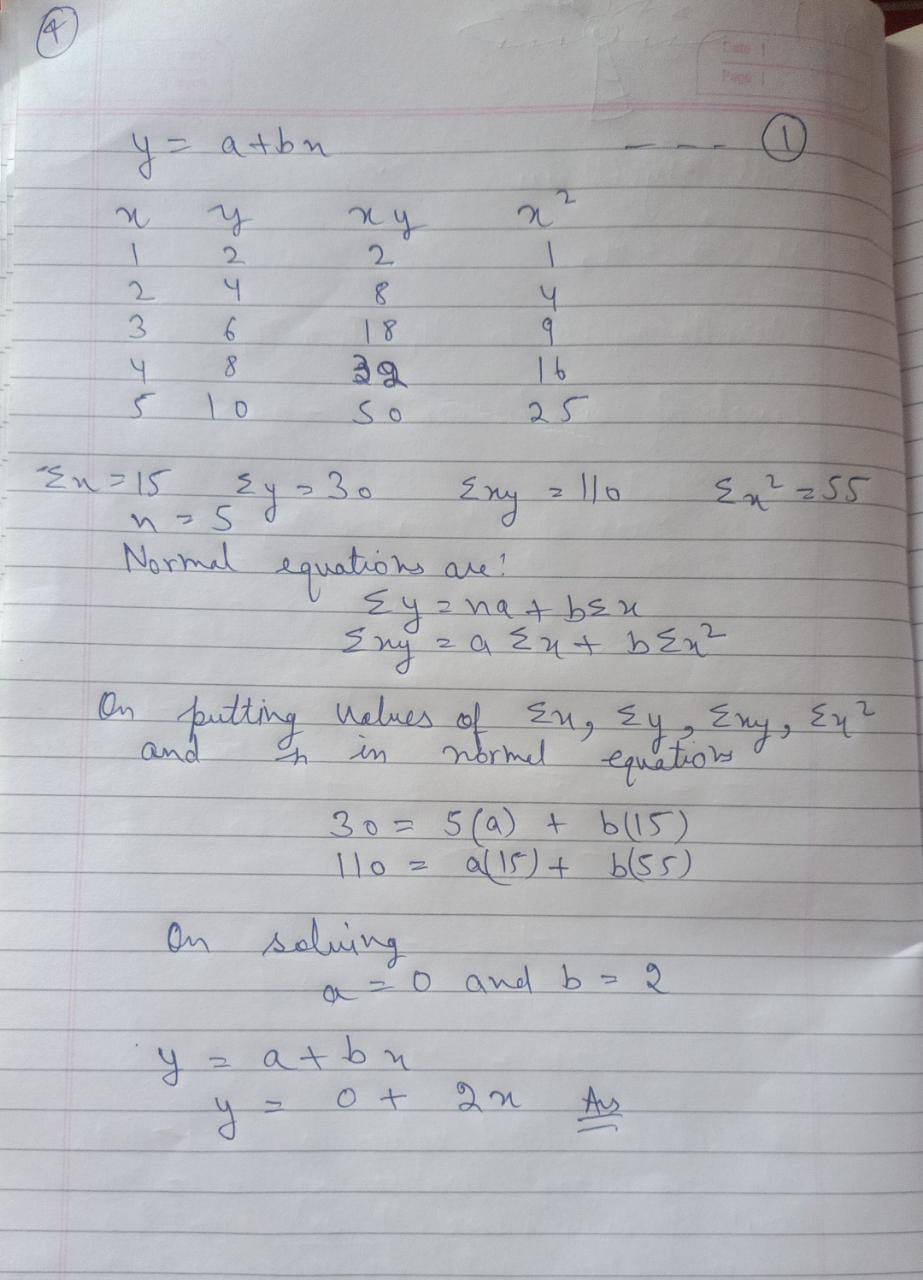 4
Date
Page
y = a + bx --- 1
x y xy x²
1 2 2 1
2 4 8 4
3 6 18 9
4 8 32 16
5 10 50 25
Σx = 15 Σy = 30 Σxy = 110 Σx² = 55
n = 5
Normal equations are:
Σy = na + bΣx
Σxy = a Σx + bΣx²
On putting values of Σx, Σy, Σxy, Σx²
and n in normal equations
30 = 5(a) + b(15)
110 = a(15) + b(55)
On solving
a = 0 and b = 2
y = a + bx
y = 0 + 2x Ans